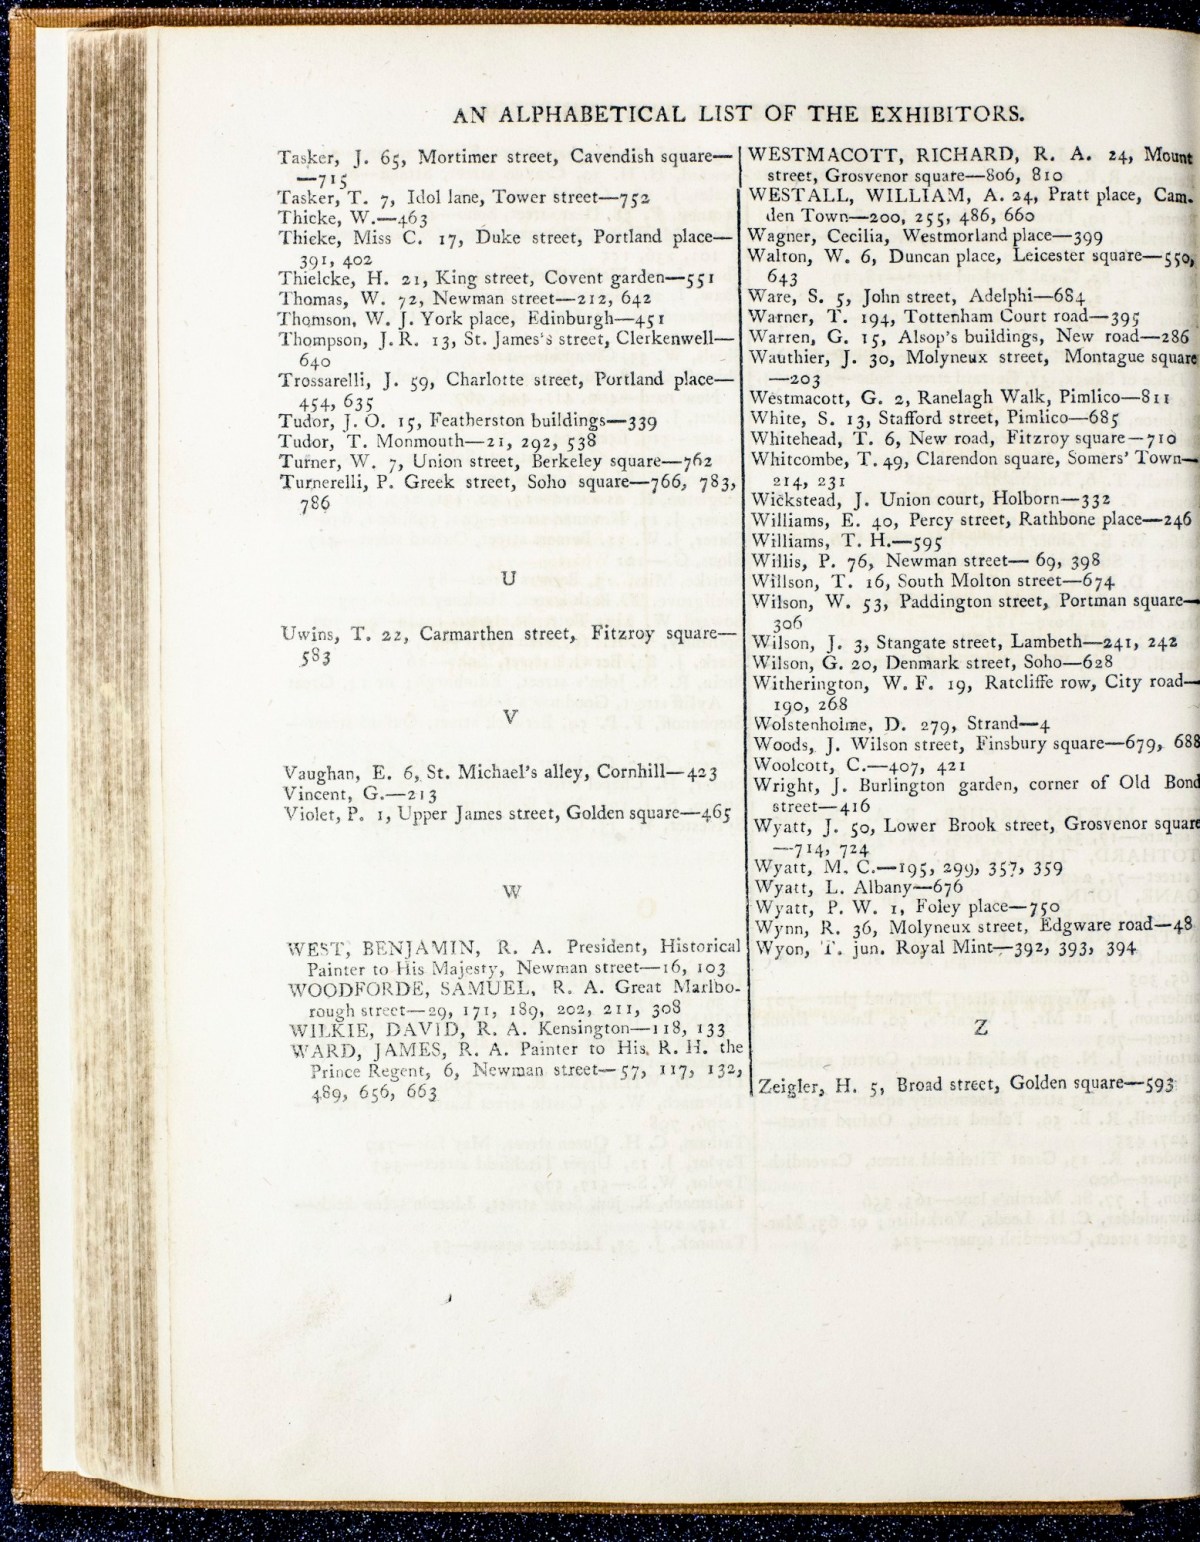 AN ALPHABETICAL LIST OF THE EXHIBITORS.
Tasker, J. 65, Mortimer street, Cavendish square—
—715
Tasker, T. 7, Idol lane, Tower street—752
Thicke, W.—463
Thicke, Miss C. 17, Duke street, Portland place—
391, 402
Thielcke, H. 21, King street, Covent garden—551
Thomas, W. 72, Newman street—212, 642
Thomson, W. J. York place, Edinburgh—451
Thompson, J. R. 13, St. James's street, Clerkenwell—
640
Trossarelli, J. 59, Charlotte street, Portland place—
454, 635
Tudor, J. O. 15, Featherston buildings—339
Tudor, T. Monmouth—21, 292, 538
Turner, W. 7, Union street, Berkeley square—762
Turnerelli, P. Greek street, Soho square—766, 783,
786
U
Uwins, T. 22, Carmarthen street, Fitzroy square—
583
V
Vaughan, E. 6, St. Michael's alley, Cornhill—423
Vincent, G.—213
Violet, P. 1, Upper James street, Golden square—465
W
WEST, BENJAMIN, R. A. President, Historical
Painter to His Majesty, Newman street—16, 103
WOODFORDE, SAMUEL, R. A. Great Marlbo-
rough street—29, 171, 189, 202, 211, 308
WILKIE, DAVID, R. A. Kensington—118, 133
WARD, JAMES, R. A. Painter to His R. H. the
Prince Regent, 6, Newman street—57, 117, 132,
489, 656, 663
WESTMACOTT, RICHARD, R. A. 24, Mount
street, Grosvenor square—806, 810
WESTALL, WILLIAM, A. 24, Pratt place, Cam-
den Town—200, 255, 486, 660
Wagner, Cecilia, Westmorland place—399
Walton, W. 6, Duncan place, Leicester square—550,
643
Ware, S. 5, John street, Adelphi—684
Warner, T. 194, Tottenham Court road—395
Warren, G. 15, Alsop's buildings, New road—286
Wauthier, J. 30, Molyneux street, Montague square
—203
Westmacott, G. 2, Ranelagh Walk, Pimlico—811
White, S. 13, Stafford street, Pimlico—685
Whitehead, T. 6, New road, Fitzroy square—710
Whitcombe, T. 49, Clarendon square, Somers' Town—
214, 231
Wickstead, J. Union court, Holborn—332
Williams, E. 40, Percy street, Rathbone place—246
Williams, T. H.—595
Willis, P. 76, Newman street— 69, 398
Willson, T. 16, South Molton street—674
Wilson, W. 53, Paddington street, Portman square—
306
Wilson, J. 3, Stangate street, Lambeth—241, 242
Wilson, G. 20, Denmark street, Soho—628
Witherington, W. F. 19, Ratcliffe row, City road—
190, 268
Wolstenholme, D. 279, Strand—4
Woods, J. Wilson street, Finsbury square—679, 688
Woolcott, C.—407, 421
Wright, J. Burlington garden, corner of Old Bond
street—416
Wyatt, J. 50, Lower Brook street, Grosvenor square
—714, 724
Wyatt, M. C.—195, 299, 357, 359
Wyatt, L. Albany—676
Wyatt, P. W. 1, Foley place—750
Wynn, R. 36, Molyneux street, Edgware road—48
Wyon, T. jun. Royal Mint—392, 393, 394
Z
Zeigler, H. 5, Broad street, Golden square—593